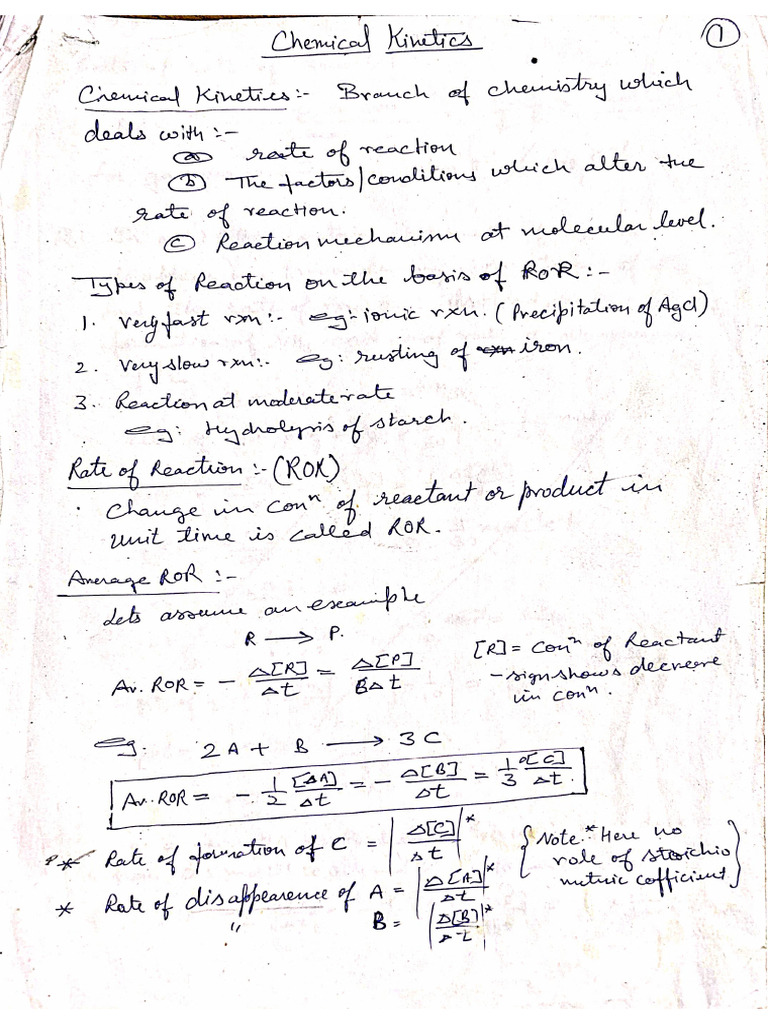 Chemical Kinetics
1
Chemical Kinetics :- Branch of chemistry which
deals with :-
(a) rate of reaction
(b) The factors/conditions which alter the
rate of reaction.
(c) Reaction mechanism at molecular level.
Types of Reaction on the basis of ROR :-
1. Very fast rxn :- eg:- ionic rxn. (Precipitation of AgCl)
2. Very slow rxn :- eg: rusting of iron.
3. Reaction at moderate rate
eg: Hydrolysis of starch.
Rate of Reaction :- (ROR)
Change in conⁿ of reactant or product in
unit time is called ROR.
Average ROR :-
Lets assume an example
R ⟶ P.
Av. ROR = - Δ[R]/Δt = Δ[P]/Δt
[R] = conⁿ of Reactant
- sign shows decrease
in conⁿ.
eg. 2A + B ⟶ 3C
Av. ROR = - 1/2 [ΔA]/Δt = - Δ[B]/Δt = 1/3 Δ[C]/Δt.
* Rate of formation of C = |Δ[C]/Δt|*
{ Note.* Here no
role of stoichio
metric coefficient }
* Rate of disappearence of A = |Δ[A]/Δt|*
" B = |Δ[B]/Δt|*